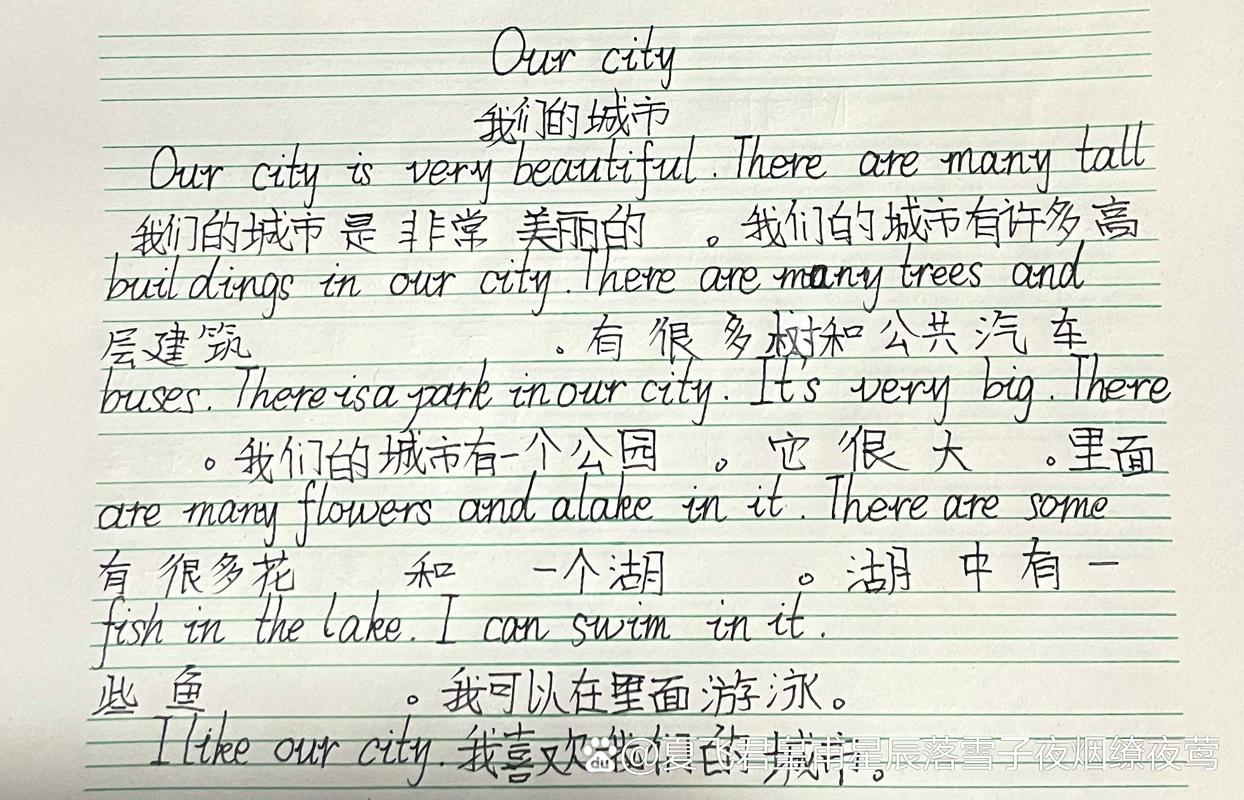 Our city
我们的城市
Our city is very beautiful. There are many tall
我们的城市是 非常 美丽的 。我们的城市有许多高
buildings in our city. There are many trees and
层建筑 。有 很 多树和 公共 汽 车
buses. There is a park in our city. It's very big. There
。我们的城市有一个公园 。它 很 大 。里面
are many flowers and a lake in it. There are some
有 很多花 和 一个湖 。湖 中 有 一
fish in the lake. I can swim in it.
些 鱼 。我可以在里面游泳。
I like our city. 我喜欢我们的城市。
du @夏飞君莫雨星辰落雪子夜烟缭夜莺